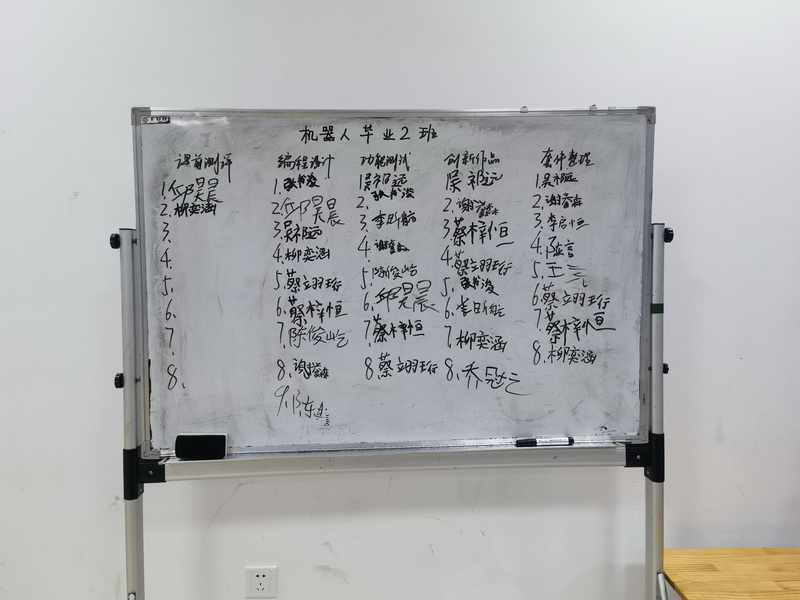 机器人毕业2班
课前测评
1.邱昊晨
2.柳奕涵
3.
4.
5.
6.
7.
8.
编程设计
1.张书浚
2.邱昊晨
3.吴祁远
4.柳奕涵
5.蔡翊珩
6.蔡梓恒
7.陈俊屹
8.谢
9.陈
功能测试
1.吴祁远
2.张书浚
3.李
4.谢
5.陈俊屹
6.邱昊晨
7.蔡梓恒
8.蔡翊珩
创新作品
吴祁远
2.谢
3.蔡梓恒
4.蔡翊珩
5.张书浚
6.李
7.柳奕涵
8.乔冠
套件整理
1.吴祁远
2.谢
3.李
4.
5.王
6.蔡翊珩
7.蔡梓恒
8.柳奕涵